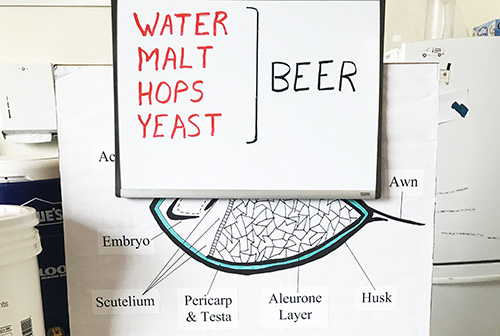 WATER
MALT
HOPS
YEAST
BEER
Ac
Awn
Embryo
Scutelium
Pericarp
& Testa
Aleurone
Layer
Husk